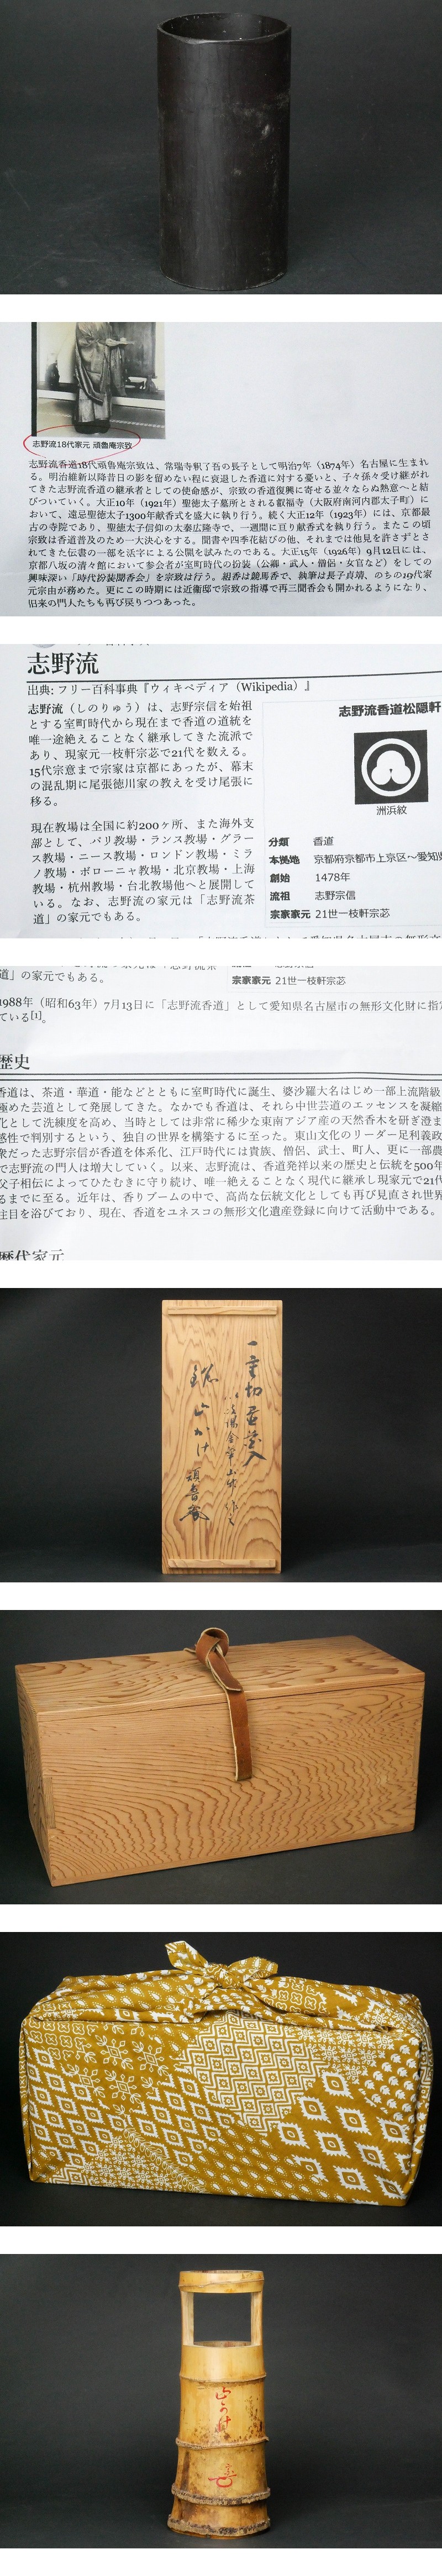 志野流18代家元 頑魯庵宗致
志野流香道18代頑魯庵宗致は、常瑞寺釈了吾の長子として明治7年（1874年）名古屋に生まれ
る。明治維新以降昔日の影を留めない程に衰退した香道に対する憂いと、子々孫々受け継がれ
てきた志野流香道の継承者としての使命感が、宗致の香道復興に寄せる並々ならぬ熱意へと結
びついていく。大正10年（1921年）聖徳太子墓所とされる叡福寺（大阪府南河内郡太子町）に
おいて、遠忌聖徳太子1300年献香式を盛大に執り行う。続く大正12年（1923年）には、京都最
古の寺院であり、聖徳太子信仰の太秦広隆寺で、一週間に亘り献香式を執り行う。またこの頃
宗致は香道普及のため一大決心をする。聞書や四季花結びの他、それまでは他見を許さずとさ
れてきた伝書の一部を活字による公開を試みたのである。大正15年（1926年）9月12日には、
京都八坂の清々館において参会者が室町時代の扮装（公卿・武人・僧侶・女官など）をしての
興味深い「時代扮装聞香会」を宗致は行う。組香は競馬香で、執筆は長子貞靖、のちの19代家
元宗由が務めた。更にこの時期には近衞邸で宗致の指導で再三聞香会も開かれるようになり、
旧来の門人たちも再び戻りつつあった。
志野流
出典: フリー百科事典『ウィキペディア（Wikipedia）』
志野流（しのりゅう）は、志野宗信を始祖
とする室町時代から現在まで香道の道統を
唯一途絶えることなく継承してきた流派で
あり、現家元一枝軒宗苾で21代を数える。
15代宗意まで宗家は京都にあったが、幕末
の混乱期に尾張徳川家の教えを受け尾張に
移る。
現在教場は全国に約200ヶ所、また海外支
部として、パリ教場・ランス教場・グラー
ス教場・ニース教場・ロンドン教場・ミラ
ノ教場・ボローニャ教場・北京教場・上海
教場・杭州教場・台北教場他へと展開して
いる。なお、志野流の家元は「志野流茶
道」の家元でもある。
志野流香道松隠軒
洲浜紋
分類 香道
本拠地 京都府京都市上京区～愛知
創始 1478年
流祖 志野宗信
宗家家元 21世一枝軒宗苾
道」の家元でもある。
宗家家元 21世一枝軒宗苾
1988年（昭和63年）7月13日に「志野流香道」として愛知県名古屋市の無形文化財に指定
ている[1]。
歴史
香道は、茶道・華道・能などとともに室町時代に誕生、婆沙羅大名はじめ一部上流階級
極めた芸道として発展してきた。なかでも香道は、それら中世芸道のエッセンスを凝縮
化として洗練度を高め、当時としては非常に稀少な東南アジア産の天然香木を研ぎ澄ま
感性で判別するという、独自の世界を構築するに至った。東山文化のリーダー足利義政
衆だった志野宗信が香道を体系化、江戸時代には貴族、僧侶、武士、町人、更に一部農
で志野流の門人は増大していく。以来、志野流は、香道発祥以来の歴史と伝統を500年
父子相伝によってひたむきに守り続け、唯一絶えることなく現代に継承し現家元で21代
るまでに至る。近年は、香りブームの中で、高尚な伝統文化としても再び見直され世界
注目を浴びており、現在、香道をユネスコの無形文化遺産登録に向けて活動中である。
歴代家元
一重切置花入
銘 山かけ
頑魯庵
山かけ